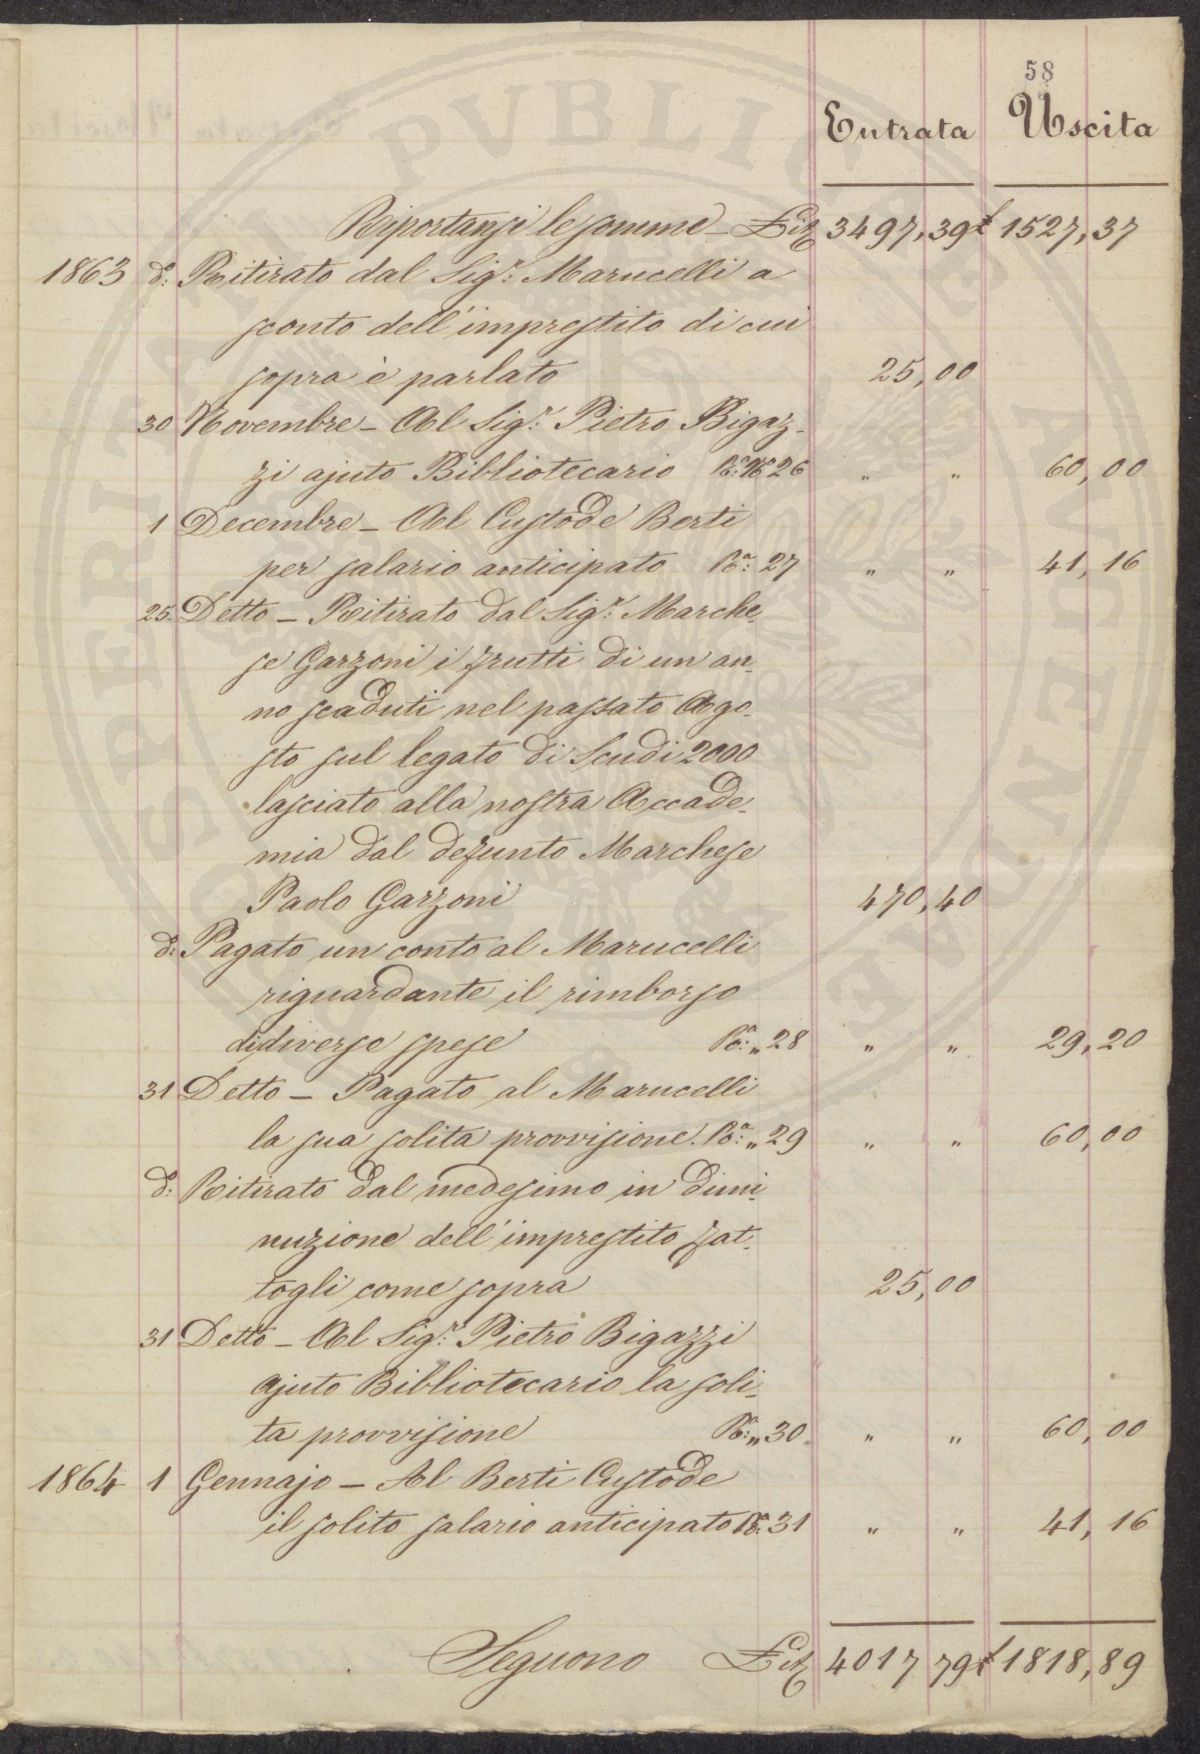 58
Entrata Uscita
Riportansi le somme - Lit 3497,39 £ 1527,37
1863 d: Ritirato dal Sig.r Marucelli a
sconto dell'imprestito di cui
sopra è parlato 25,00
30 Novembre - Al Sig.r Pietro Bigaz-
zi ajuto Bibliotecario Ra: No 26 " " 60,00
1 Decembre - Al Custode Berti
per salario anticipato Ra: 27 " " 41,16
25. Detto - Ritirato dal Sig.r Marche-
se Garzoni i frutti di un an-
no scaduti nel passato Ago-
sto sul legato di Scudi 2000
lasciato alla nostra Accade-
mia dal defunto Marchese
Paolo Garzoni 470,40
d: Pagato un conto al Marucelli
riguardante il rimborso
di diverse spese Ra: " 28 " " 29,20
31 Detto - Pagato al Marucelli
la sua solita provvisione. Ra: " 29 " " 60,00
d: Ritirato dal medesimo in dimi-
nuzione dell'imprestito fat-
togli come sopra 25,00
31 Detto - Al Sig.r Pietro Bigazzi
ajuto Bibliotecario la soli-
ta provvisione Ra: " 30 " " 60,00
1864 1 Gennajo - Al Berti Custode
il solito salario anticipato Ra: 31 " " 41,16
Seguono Lit 4017 79 £ 1818,89